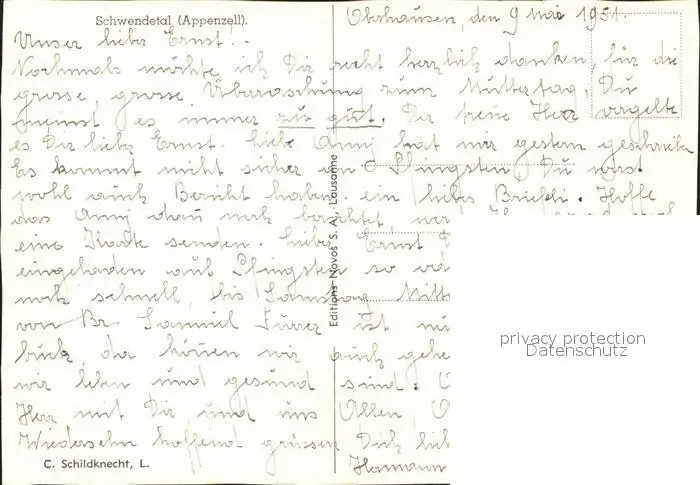 Schwendetal (Appenzell).
Oberhausen, den 9 Mai 1951.
Unser liebes Ernst!.
Nochmals möchte ich Dir recht herzlich danken, für die
grosse, grosse Überraschung zum Muttertag, Du
meinst es immer zu gut. Der treue Herr vergelte
es Dir lieber Ernst. Liebe Anny hat mir gestern geschrieben
Es kommt nicht sicher an Pfingsten, Du wirst
wohl auch Bericht haben. ein liebes Briefli. Hoffe
das Anny dan noch berichtet, wer
eine Karte senden. Lieber Ernst
eingeladen auf Pfingsten so
noch schnell, bis Samstag Mitt
von Br. Samuel Furrer ist
buch, da können wir auch gehe
wir leben und gesund sind.
Herr mit Dir, und uns Allen,
Wiedersehn hoffend grüssen Dich
Hermann
C. Schildknecht, L.
Editions Novos S. A. - Lausanne
privacy protection
Datenschutz